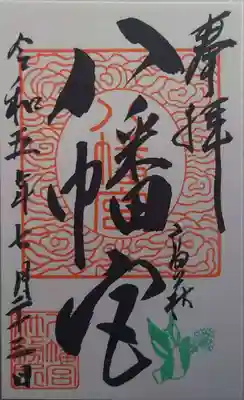 奉拝
高萩
八幡宮
八幡宮
令和五年七月二十三日